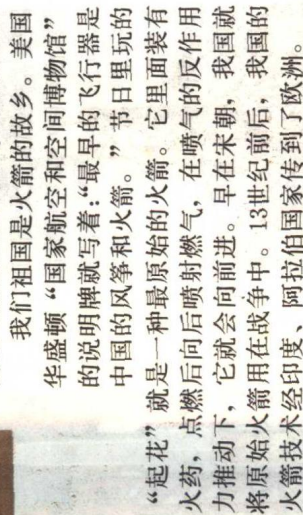 我们祖国是火箭的故乡。美国
华盛顿“国家航空和空间博物馆”
的说明牌就写着：“最早的飞行器是
中国的风筝和火箭。”节日里玩的
“起花”就是一种最原始的火箭。它里面装有
火药，点燃后向后喷射燃气，在喷气的反作用
力推动下，它就会向前进。早在宋朝，我国就
将原始火箭用在战争中。13世纪前后，我国的
火箭技术经印度、阿拉伯国家传到了欧洲。